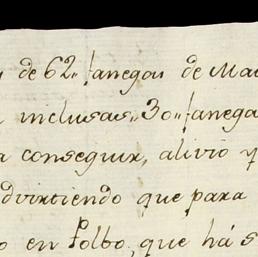 de 62,, fanegas de Mai
inclusas,, 30,, fanega
conseguir, alivio y
dvirtiendo que para
o en Polbo, que há s